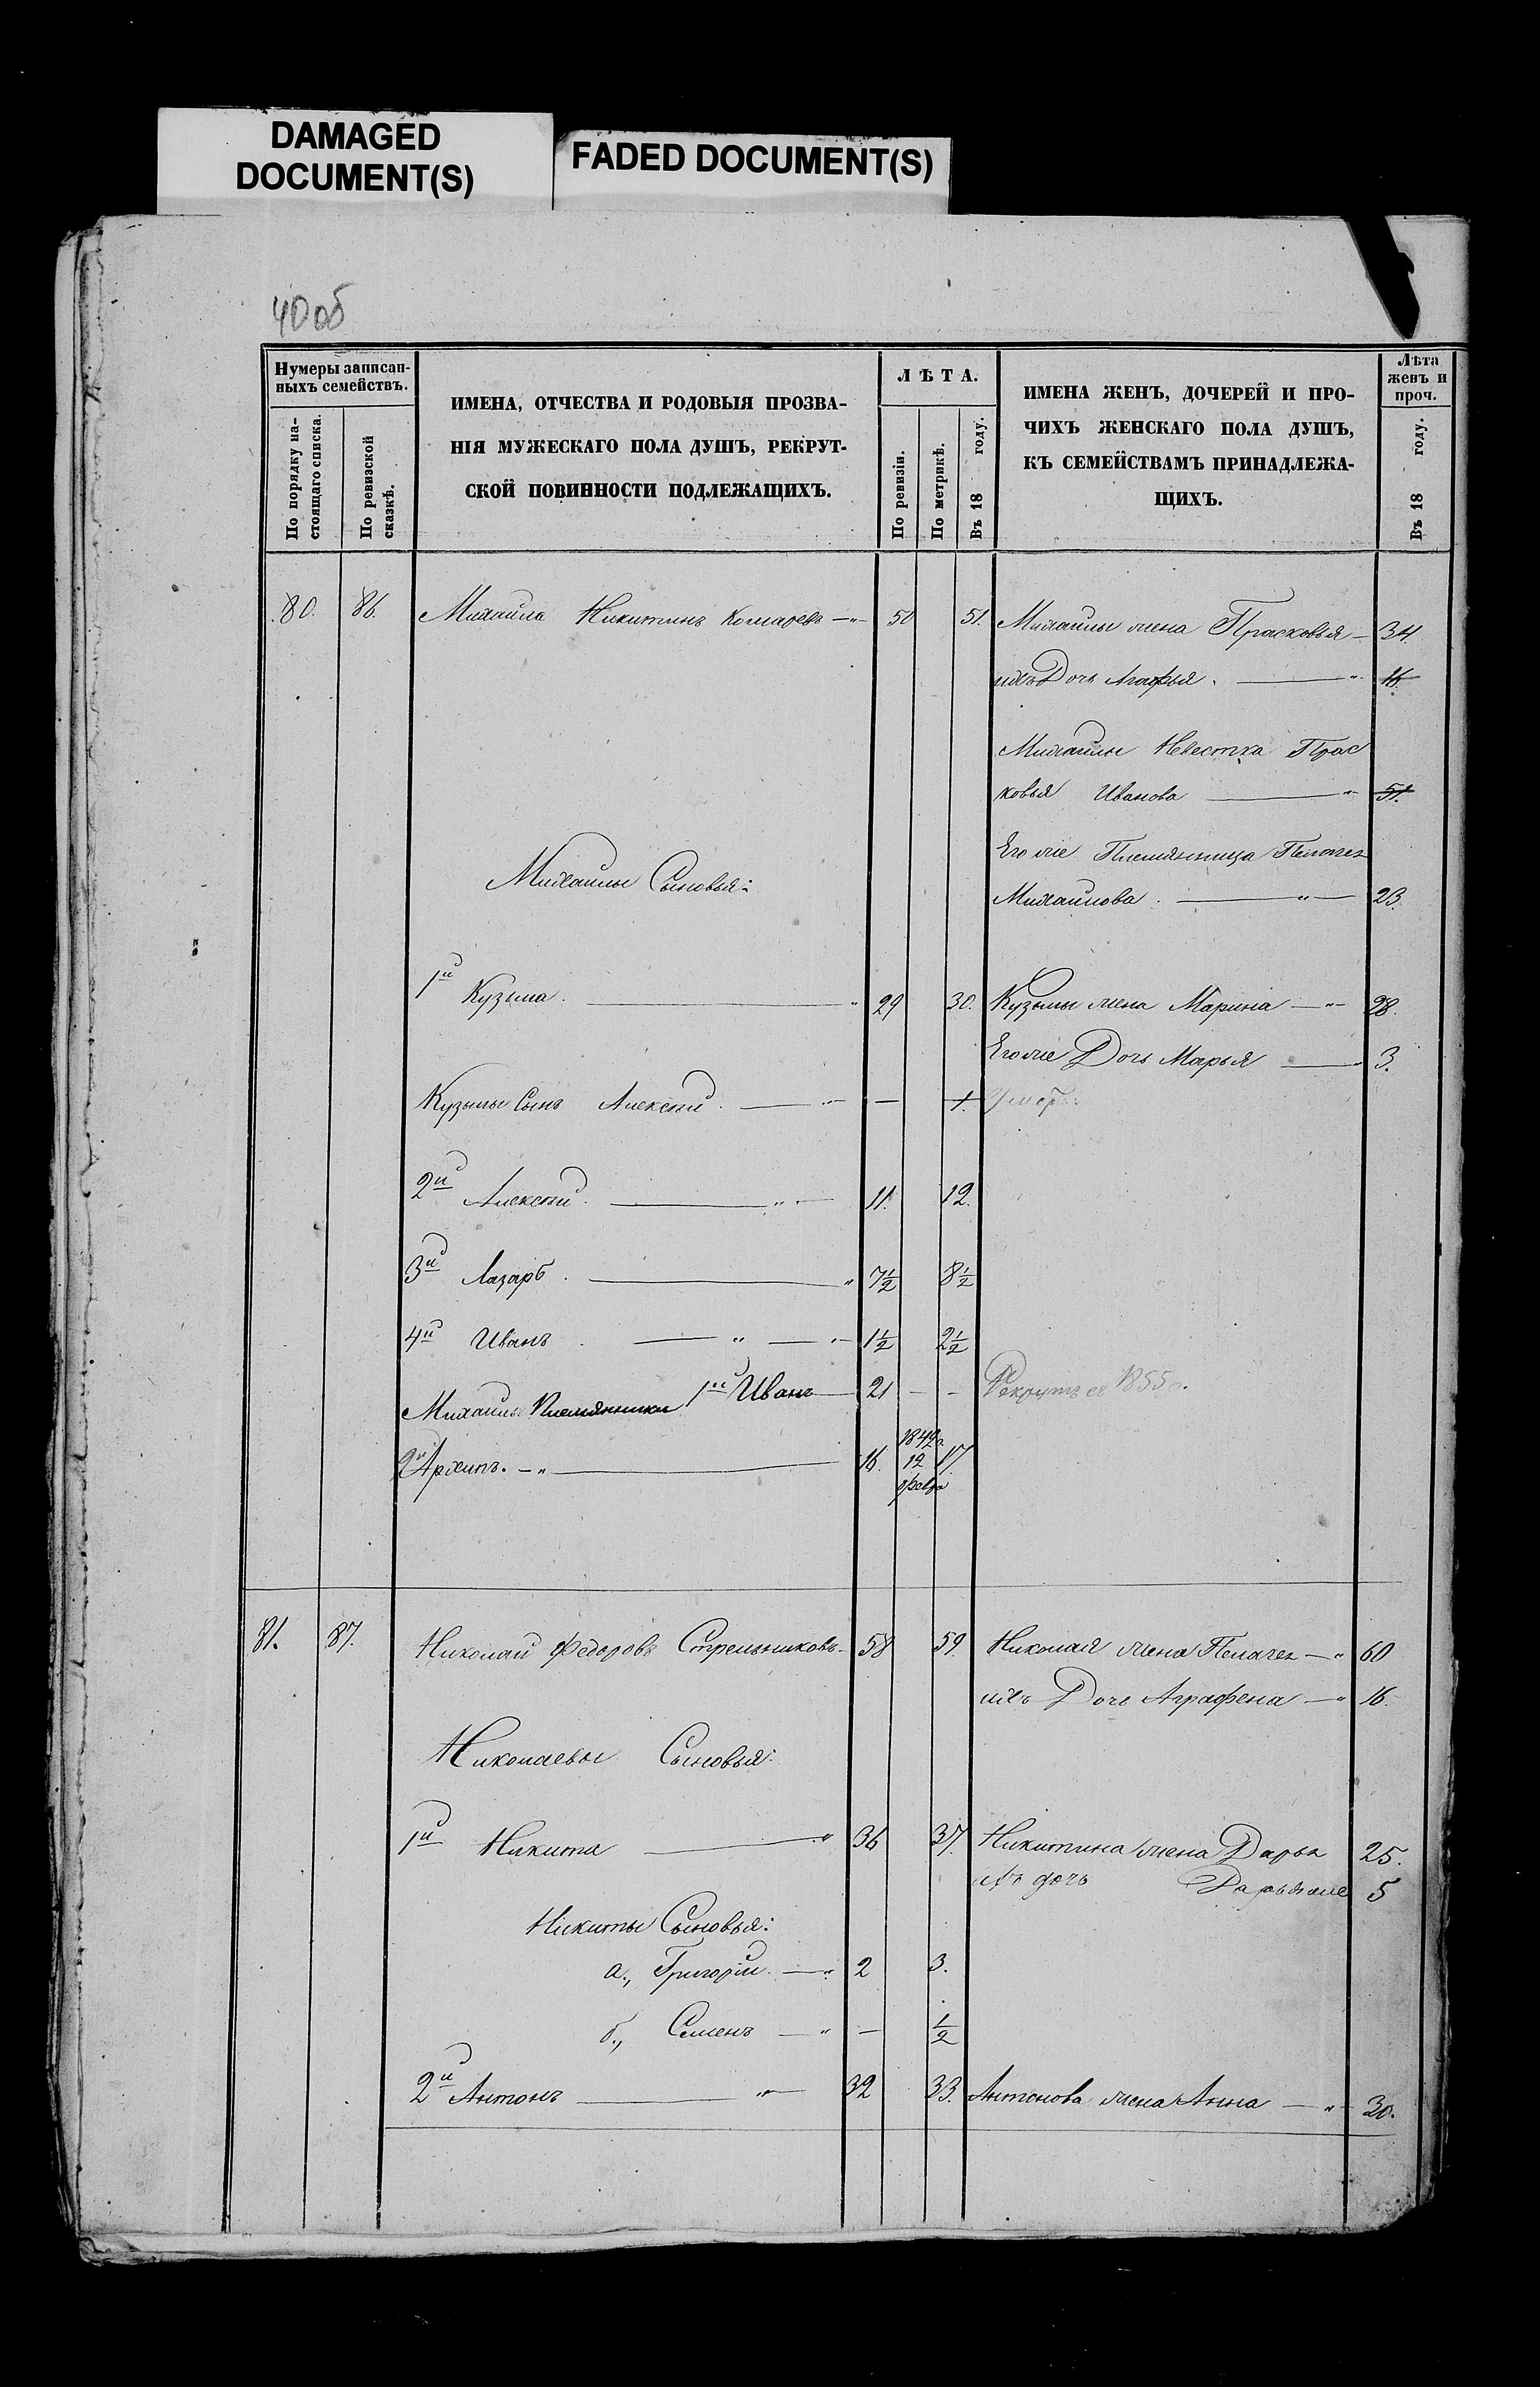 DAMAGED
DOCUMENT(S)
FADED DOCUMENT(S)
40об
Нумеры записан-
ныхъ семействъ.
По порядку на-
стоящаго списка.
По ревизской
сказкѣ.
ИМЕНА, ОТЧЕСТВА И РОДОВЫЯ ПРОЗВА-
НІЯ МУЖЕСКАГО ПОЛА ДУШЪ, РЕКРУТ-
СКОЙ ПОВИННОСТИ ПОДЛЕЖАЩИХЪ.
ЛѢТА.
По ревизіи.
По метрикѣ.
Въ 18 году.
ИМЕНА ЖЕНЪ, ДОЧЕРЕЙ И ПРО-
ЧИХЪ ЖЕНСКАГО ПОЛА ДУШЪ,
КЪ СЕМЕЙСТВАМЪ ПРИНАДЛЕЖА-
ЩИХЪ.
Лѣта
женъ и
проч.
Въ 18 году.
80. 86. Михайла Никитинъ Комаревъ 50 51. Михайлы жена Прасковья 34.
ихъ Дочь Агафья. 16
Михайлы Невестка Прас
ковья Иванова 51.
Его же Племянница Пелагея
Михайлова. 23.
Михайлы Сыновья:
1й Кузьма. 29 30. Кузьмы жена Марина 28.
Его же Дочь Марья 3.
Кузьмы Сынъ Алексей. — 1. Умеръ
2й Алексей. 11. 12.
3й Лазарь. 7½ 8½
4й Иванъ. 1½ 2½
Михайлы Племянники 1й Иванъ 21 — — Рекрутъ съ 1855 г.
2й Архипъ. 16. 1842г. 12 февра 17
81. 87. Николай Федоровъ Стрельниковъ 58 59. Николая жена Пелагея 60
ихъ Дочь Аграфена 16.
Николаевы Сыновья:
1й Никита 36 37. Никитина жена Дарья 25.
ихъ дочь Дарья же 5
Никиты Сыновья:
а., Григорій. 2 3.
б., Семенъ — ½
2й Антонъ 32 33. Антонова жена Анна 30.